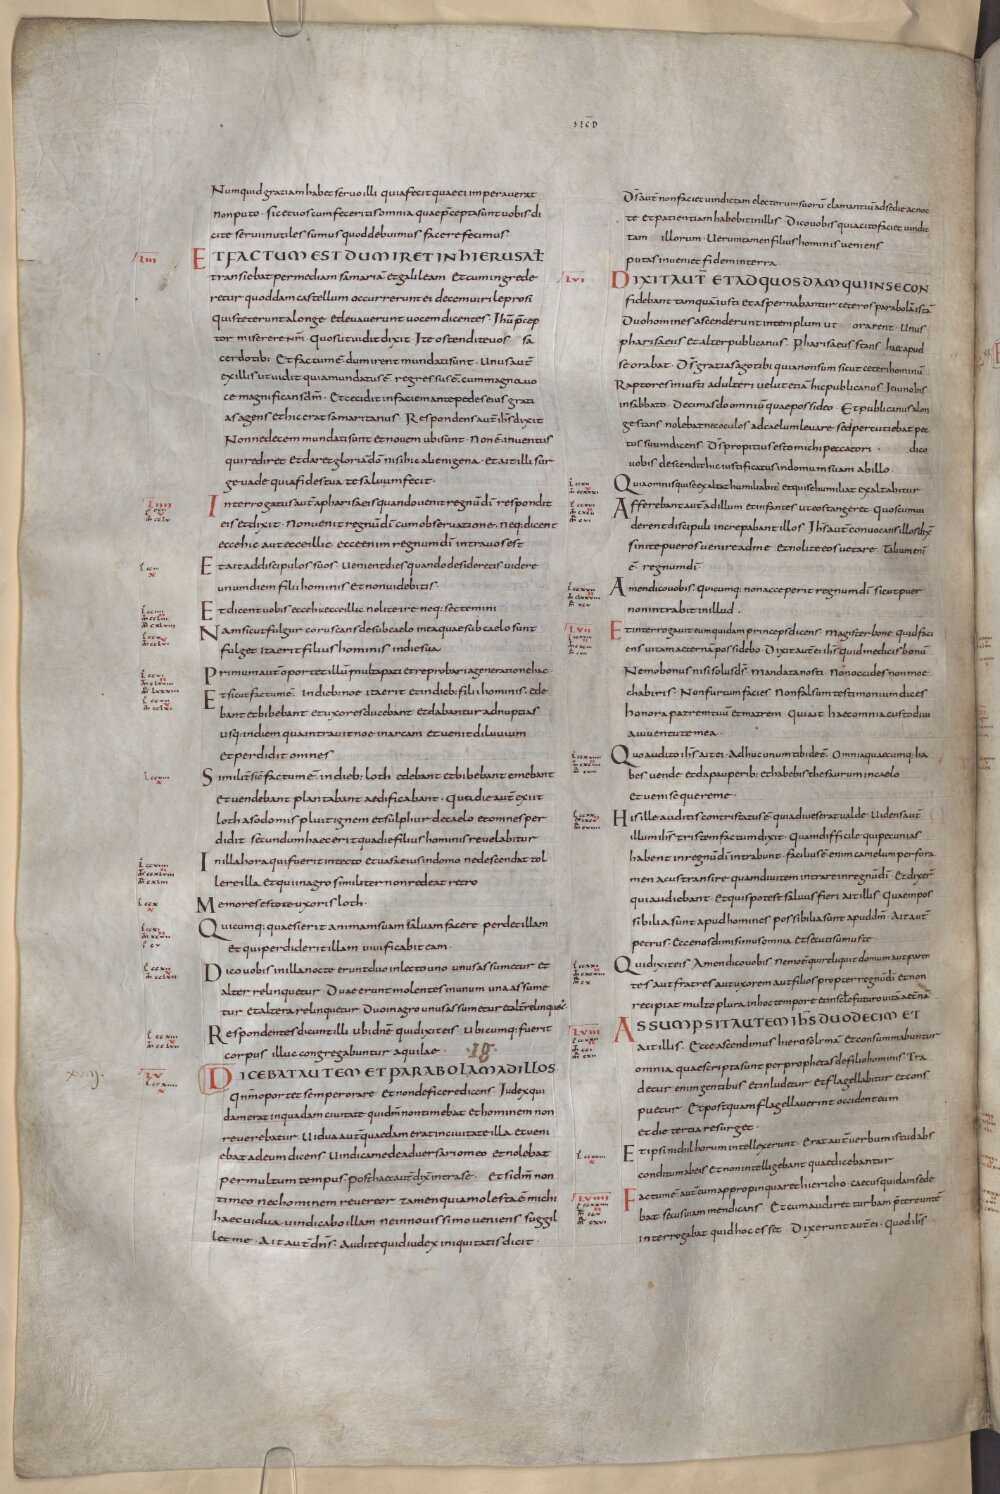 SIC̄D
Numquid gratiam habet servo illi quia fecit quae ei imperaverat
non puto · sic et vos cum feceritis omnia quae p̄cepta sunt vobis di
cite servi inutiles sumus quod debuimus facere fecimus ·
LIII
ET FACTUM EST DUM IRET IN HIERUSAL̄
transiebat per mediam samariā et galileam · Et cum ingrede
retur quoddam castellum occurrerunt ei decem viri leprosi
qui steterunt a longe et levaverunt vocem dicentes · Ihū p̄cep
tor miserere nr̄i · Quos ut vidit dixit · Ite ostendite vos sa
cerdotib: · Et factum ē dum irent mundati sunt · Unus aut̄
ex illis ut vidit quia mundatus ē · regressus ē · cum magna vo
ce magnificans dm̄ · Et cecidit in faciem ante pedes eius grati
as agens et hic erat samaritanus · Respondens aut̄ ihs̄ dixit
Nonne decem mundati sunt et novem ubi sunt · Non ē inventus
qui rediret et daret gloriā dō nisi hic alienigena · et ait illi sur
ge vade quia fides tua te salvum fecit ·
LIIII
Interrogatus aut̄ a pharisaeis quando venit regnū dī · respondit
eis et dixit · Non venit regnū dī cum observatione · neq: dicent
ecce hic aut ecce illic ecce enim regnum dī intra vos est
Et ait ad discipulos suos · Venient dies quando desideretis videre
unum diem filii hominis et non videbitis ·
Et dicent vobis ecce hic ecce illic nolite ire neq: sectemini
Nam sicut fulgur coruscans de sub caelo in ea quae sub caelo sunt
fulget ita erit filius hominis in die sua
Primum aut̄ oportet illū multa pati et reprobari a generatione hac
Et sicut factum ē · In dieb: noe ita erit et in dieb: filii hominis · ede
bant et bibebant et uxores ducebant et dabantur ad nuptias
usq: in diem qua intravit noe in arcam et venit diluvium
et perdidit omnes
Similit̄ sic̄ factum ē in dieb: loth edebant et bibebant emebant
et vendebant plantabant aedificabant · Qua die aut̄ exiit
loth a sodomis pluit ignem et sulphur de caelo et omnes per
didit secundum haec erit qua die filius hominis revelabitur
In illa hora qui fuerit in tecto et vasa eius in domo ne descendat tol
lere illa et qui in agro similiter non redeat retro
Memores estote uxoris loth ·
Quicumq: quaesierit animam suam salvam facere perdet illam
et qui perdiderit illam vivificabit eam ·
Dico vobis in illa nocte erunt duo in lecto uno unus assumetur et
alter relinquetur · Duae erunt molentes in unum una assume
tur et altera relinquetur duo in agro unus assumetur et alt̄ relinquet̄
Respondentes dicunt illi ubi dn̄e qui dixit eis Ubicumq: fuerit
corpus illuc congregabuntur aquilae · 18 ·
LV
DICEBAT AUTEM ET PARABOLAM AD ILLOS
Qn̄m oportet semper orare et non deficere dicens · Iudex qui
dam erat in quadam civitate qui dm̄ non timebat et hominem non
reverebatur · Vidua aut̄ quaedam erat in civitate illa et veni
ebat ad eum dicens · Vindica me de adversario meo et nolebat
per multum tempus · Post haec aut̄ dix̄ intra se · Et si dm̄ non
timeo nec hominem revereor tamen quia molesta ē michi
haec vidua vindicabo illam ne in novissimo veniens suggil
let me · Ait aut̄ dn̄s · audite quid iudex iniquitatis dicit ·
Ds̄ aut̄ non faciet vindictam electorum suorū clamantiū ad se die ac noc
te et patientiam habebit in illis Dico vobis quia cito faciet vindic
tam illorum · Verumtamen filius hominis veniens
putas inveniet fidem in terra ·
LVI
DIXIT AUT̄ ET AD QUOSDAM QUI IN SE CON
fidebant tamquā iusti et aspernabantur ceteros parabolā istā
Duo homines ascenderunt in templum ut orarent · Unus
pharisaeus et alter publicanus · Pharisaeus stans haec apud
se orabat · Ds̄ gratias ago tibi quia non sum sicut ceteri hominū
Raptores iniusti adulteri velut etiā hic publicanus · Ieiuno bis
in sabbato · Decimas do omniū quae possideo · Et publicanus a lon
ge stans nolebat nec oculos ad caelum levare sed percutiebat pec
tus suum dicens · Ds̄ propitius esto michi peccatori · dico
vobis descendit hic iustificatus in domum suam ab illo ·
Quia omnis qui se exaltat humiliabit̄ et qui se humiliat exaltabitur
Afferebant aut̄ ad illum et infantes ut eos tangeret · quos cum vi
derent discipuli increpabant illos · Ihs̄ aut̄ convocans illos dix̄
sinite pueros venire ad me et nolite eos vetare · talium eni
ē regnum dī
Amen dico vobis · quicumq: non acceperit regnum dī sicut puer
non intrabit in illud ·
LVII
Et interrogavit eum quidam princeps dicens · Magister bone quid faci
ens vitam aeternā possidebo · Dixit aut̄ ei ihs̄ quid me dicis bonū
Nemo bonus nisi solus ds̄ · Mandata nosti · Non occides non moe
chaberis · Non furtum facies · Non falsum testimonium dices
honora patrem tuū et matrem · Qui ait haec omnia custodivi
a iuventute mea ·
Quo audito ihs̄ ait ei · Adhuc unum tibi de ē · Omnia quaecumq: ha
bes vende et da pauperib: et habebis thesaurum in caelo
et veni sequere me ·
His ille auditis contristatus ē quia dives erat valde · Videns aut̄
illum ihs̄ tristem factum dixit · Quam difficile qui pecunias
habent in regnū dī intrabunt · facilius ē enim camelum per fora
men acus transire quam divitem intrare in regnū dī · Et dixer̄
qui audiebant · Et quis potest salvus fieri ait illis · Quae inpos
sibilia sunt apud homines possibilia sunt apud dm̄ · Ait aut̄
petrus · Ecce nos dimisimus omnia et secuti sumus te ·
Qui dixit eis · Amen dico vobis nemo ē qui reliquit domum aut paren
tes aut fratres aut uxorem aut filios propter regnū dī et non
recipiat multo plura in hoc tempore et in sc̄lo futuro vitā aet̄nā
LVIII
ASSUMPSIT AUTEM IHS̄ DUODECIM ET
ait illis · Ecce ascendimus hierosolimā · Et consummabuntur
omnia quae scripta sunt per prophetas de filio hominis Tra
detur enim gentibus et inludetur et flagellabitur et cons
puetur · Et postquam flagellaverint occident eum
et die tertia resurget ·
Et ipsi nichil horum intellexerunt · Erat aut̄ verbum istud abs
conditum ab eis et non intelligebant quae dicebantur
LVIIII
Factum ē aut̄ cum appropinquaret hiericho · caecus quidam sede
bat secus viam mendicans · Et cum audiret turbam p̄tereuntē
interrogabat quid hoc esset Dixerunt aut̄ ei · quod ihs̄